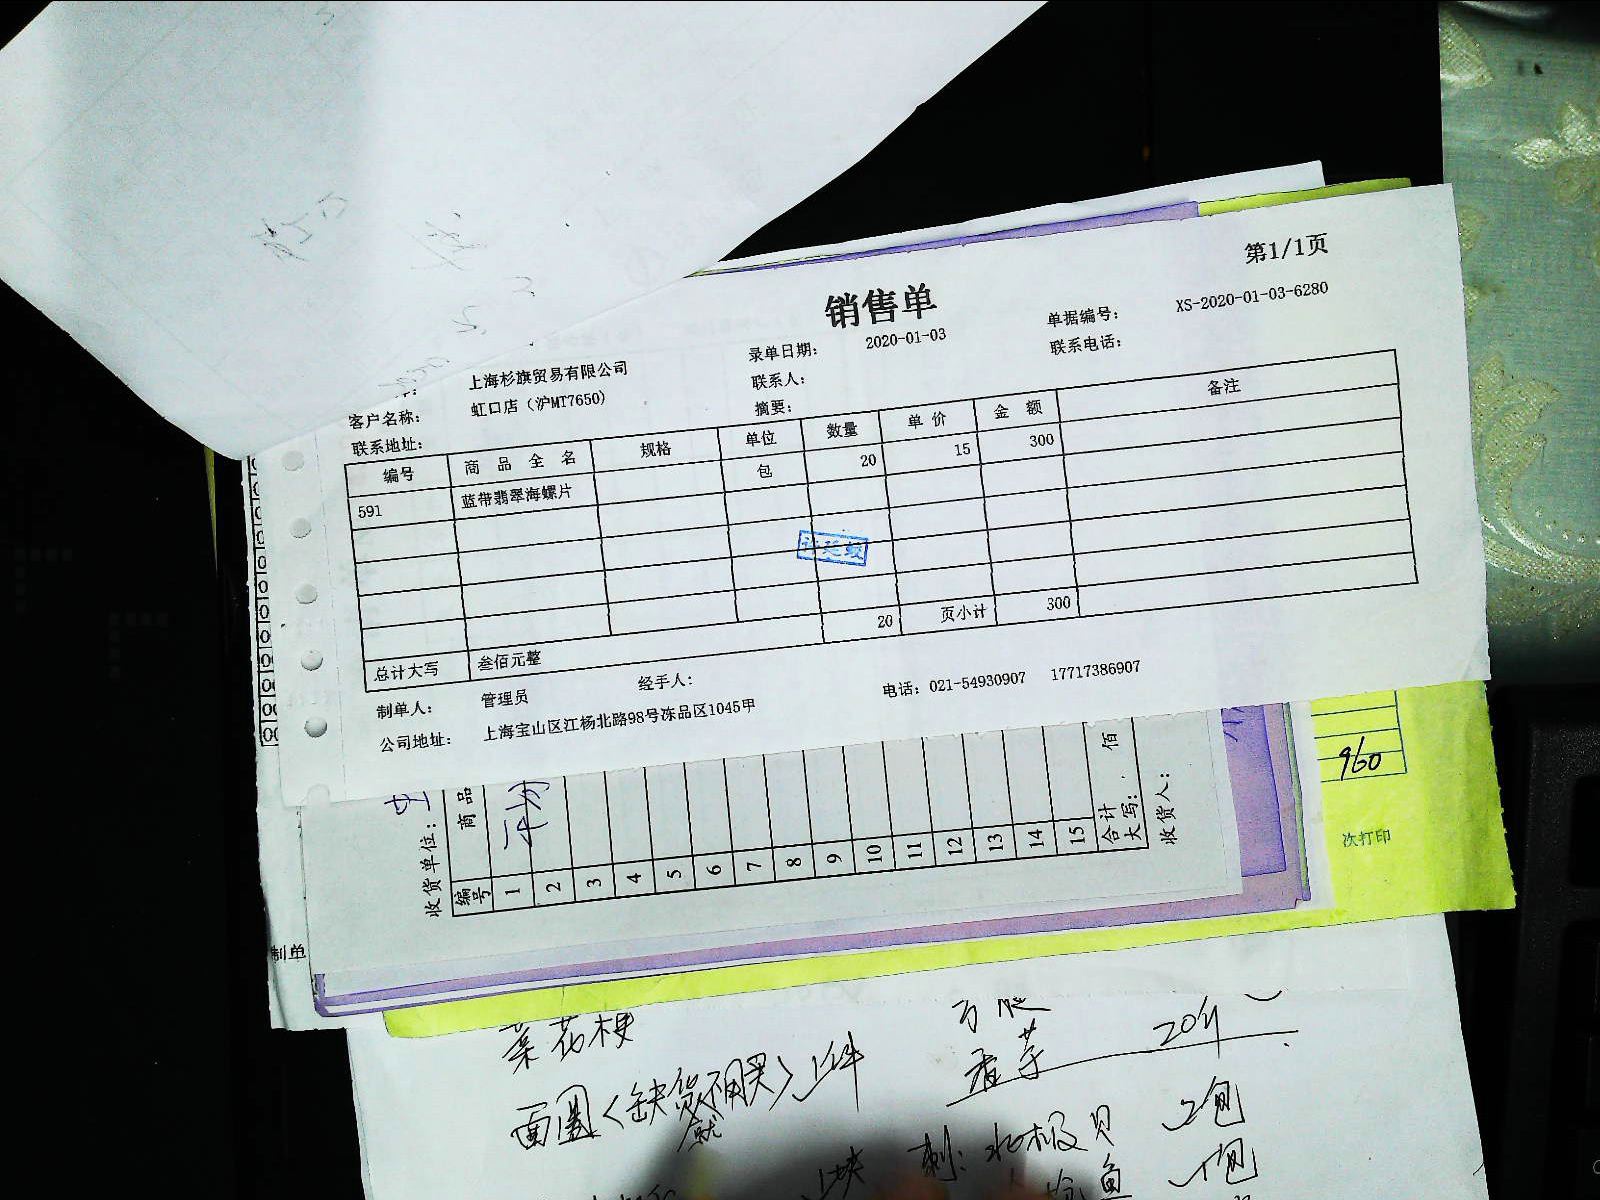 第1/1页
销售单
上海杉旗贸易有限公司 录单日期: 2020-01-03 单据编号: XS-2020-01-03-6280
客户名称: 虹口店(沪MT7650) 联系人: 联系电话:
联系地址: 摘要:
编号 商品全名 规格 单位 数量 单价 金额 备注
591 蓝带翡翠海螺片 包 20 15 300
20 页小计 300
总计大写 叁佰元整
制单人: 管理员 经手人: 电话: 021-54930907 17717386907
公司地址: 上海宝山区江杨北路98号冻品区1045甲
960
次打印
收货单位:
编号 商品
1
2
3
4
5
6
7
8
9
10
11
12
13
14
15
合计大写: 佰
收货人:
制单
菜花梗
面圆<缺货不用买> 1件
就
香芋 20斤
刺: 北极贝 2包
1包